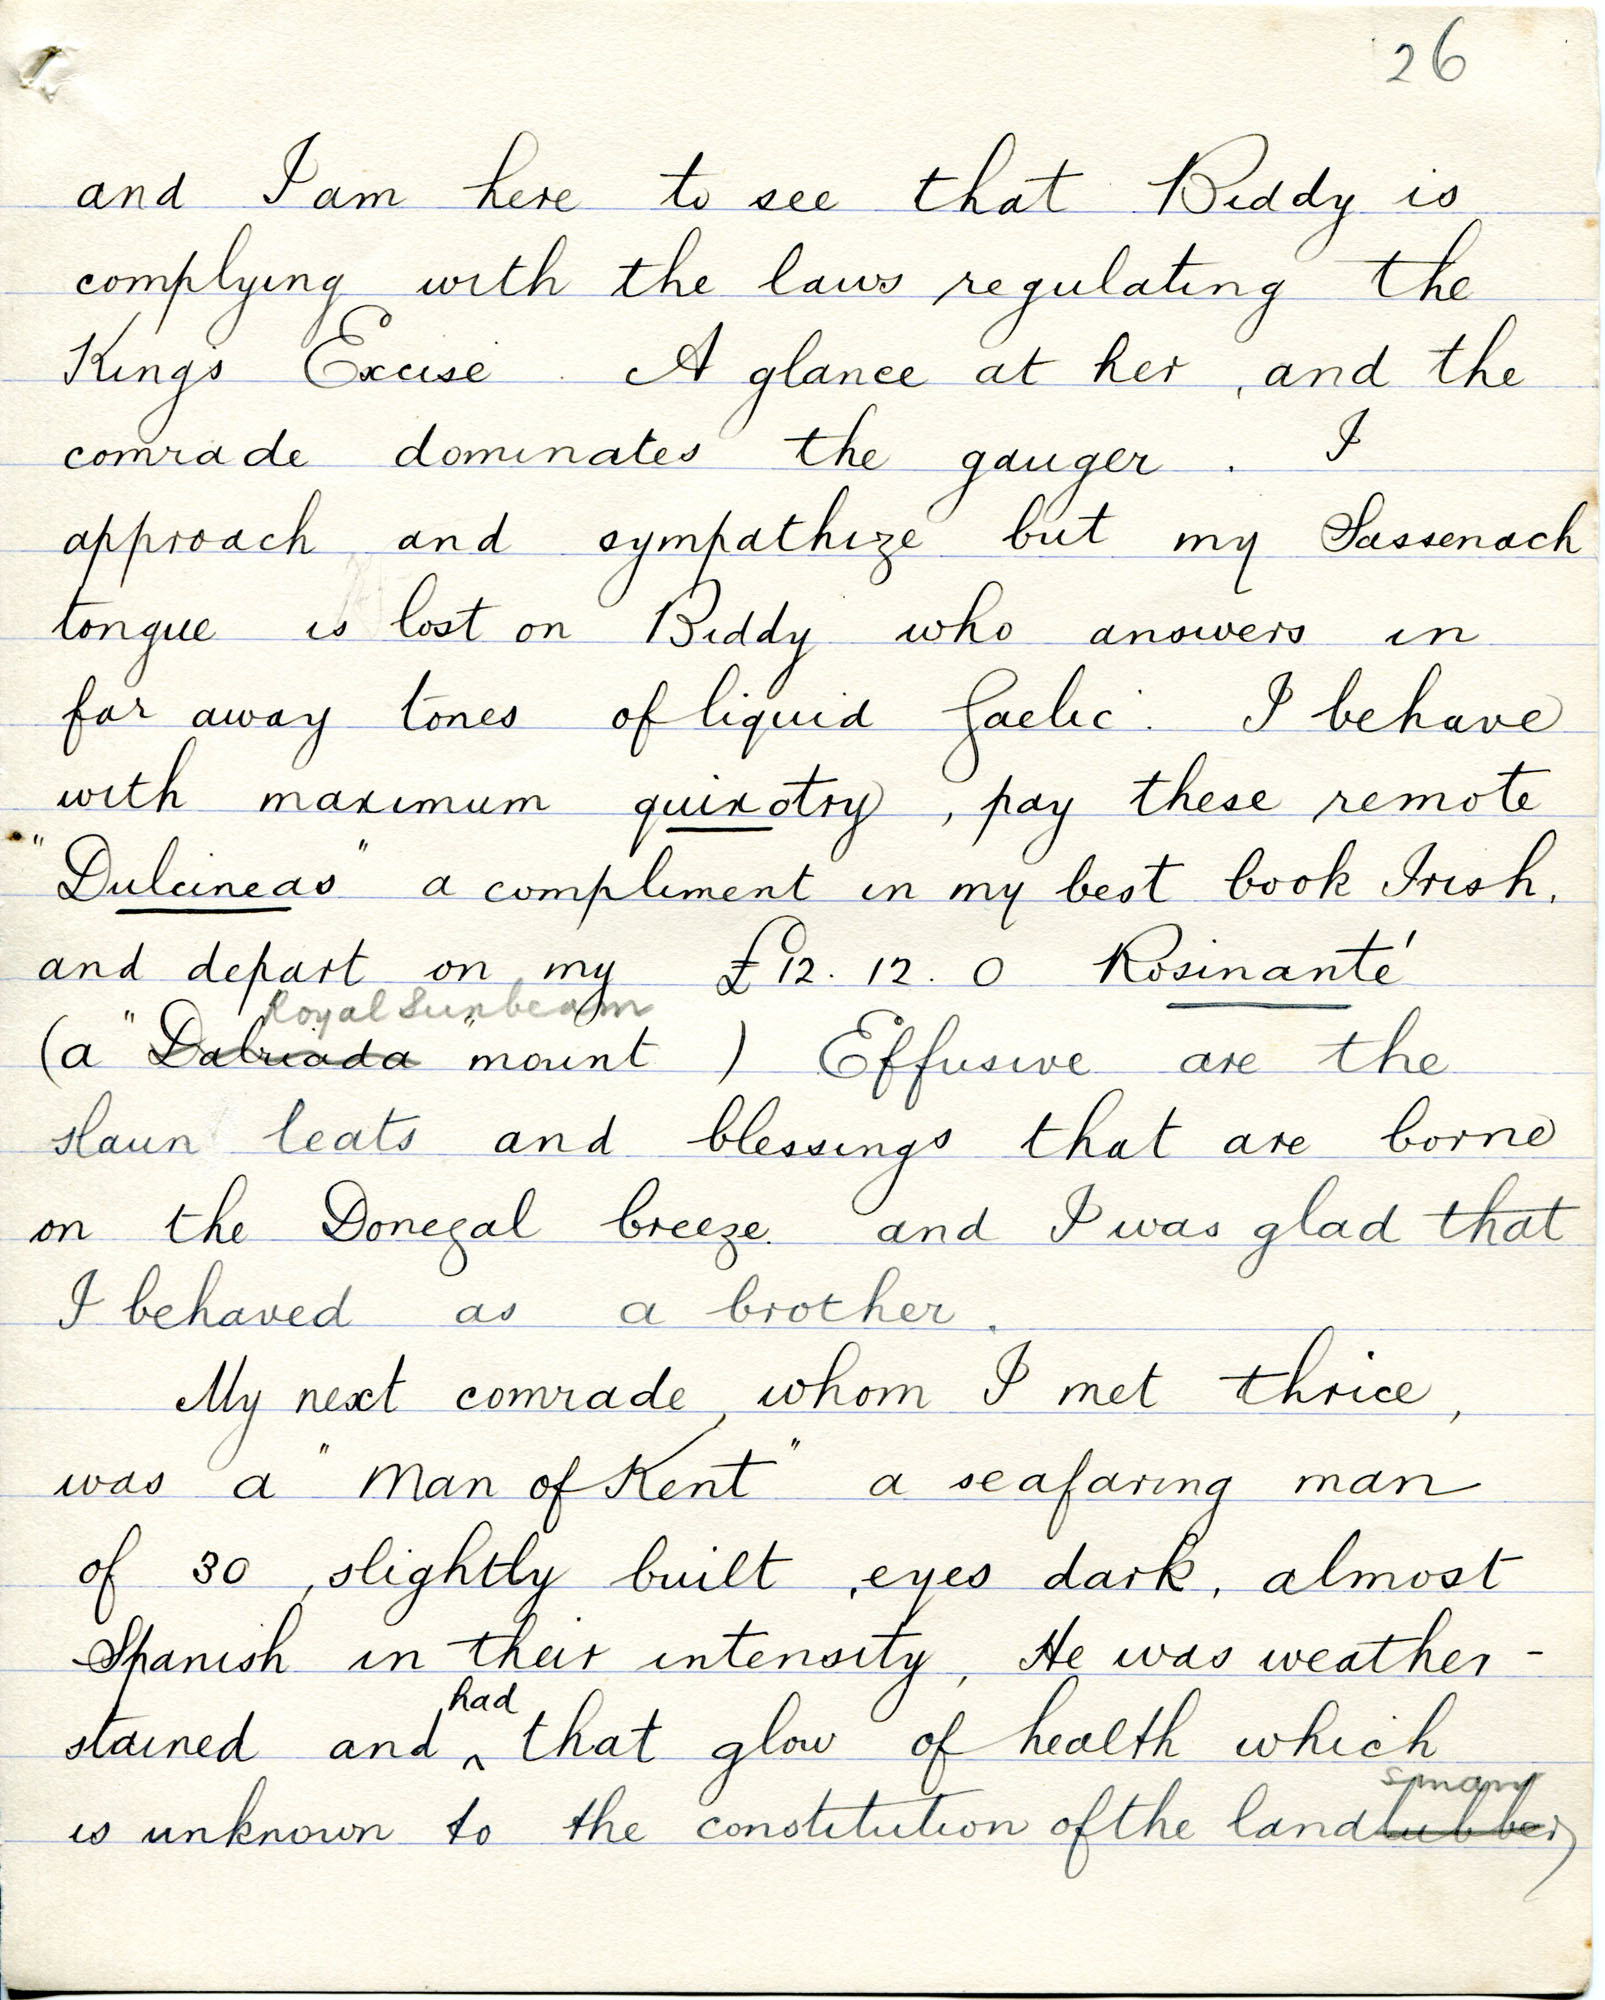 26
and I am here to see that Biddy is
complying with the laws regulating the
King's Excise. A glance at her, and the
comrade dominates the gauger. I
approach and sympathize but my Sassenach
tongue is lost on Biddy who answers in
far away tones of liquid Gaelic. I behave
with maximum quixotry, pay these remote
"Dulcineas" a compliment in my best book Irish,
and depart on my £12.12.0 Rosinanté
Royal Sunbeam
(a "Dalriada" mount) Effusive are the
slaun leats and blessings that are borne
on the Donegal breeze. and I was glad that
I behaved as a brother.
My next comrade, whom I met thrice,
was a "Man of Kent" a seafaring man
of 30, slightly built, eyes dark, almost
Spanish in their intensity, He was weather-
had
stained and ^ that glow of health which
is unknown to the constitution of the landlubber,